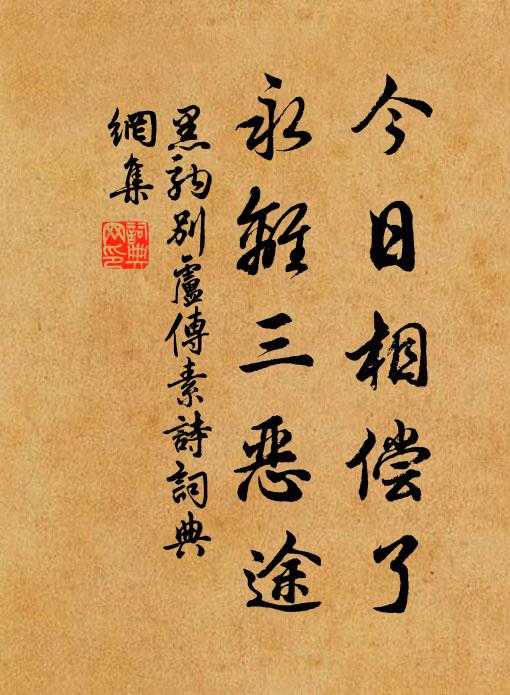 今日相偿了
永離三恶途
黑駒別盧傳素詩詞典
網集
詞典
网印